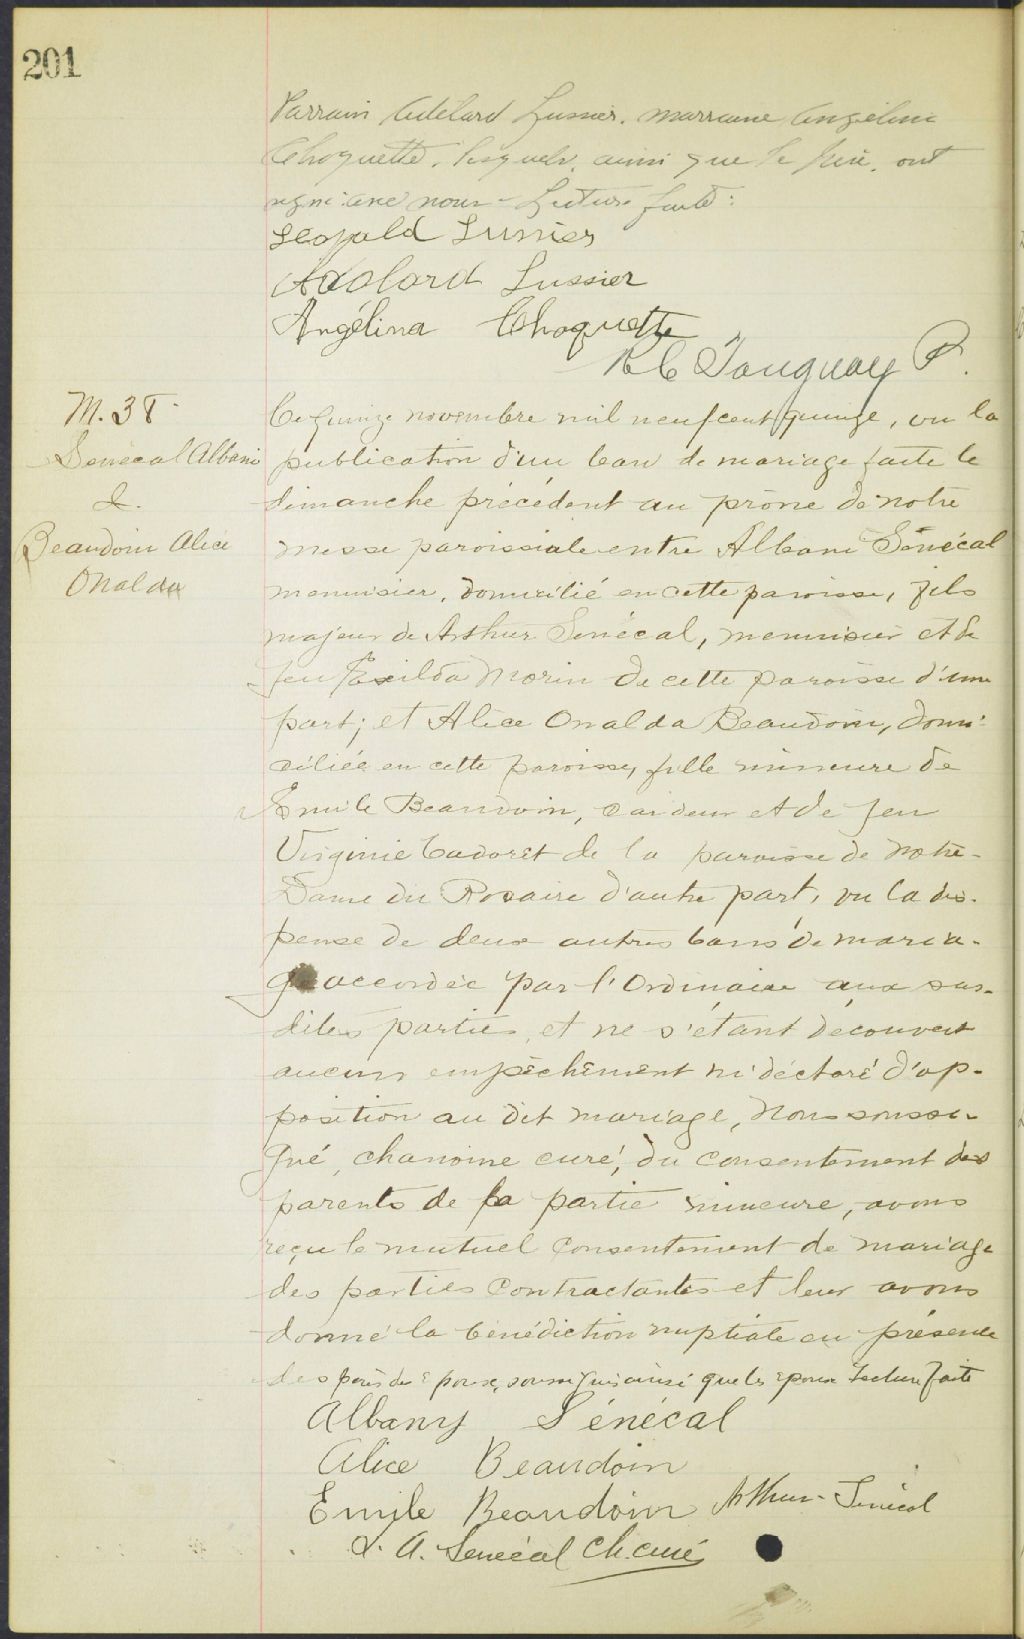 201
Parrain Adélard Lussier, marraine Angélina
Choquette, lesquels, ainsi que le père, ont
signé avec nous. Lecture faite:
Léopold Lussier
Adélard Lussier
Angélina Choquette
Tanguay P.
M. 38
Senécal Albani
&
Beaudoin Alice
Onalda
Ce quinze novembre mil neuf cent quinze, vu la
publication d'un ban de mariage faite le
dimanche précédent au prône de notre
messe paroissiale entre Albani Sénécal
menuisier, domicilié en cette paroisse, fils
majeur de Arthur Senécal, menuisier et de
feu Exilda Morin de cette paroisse d'une
part; et Alice Onalda Beaudoin, domi-
ciliée en cette paroisse, fille mineure de
Emile Beaudoin, et de feu
Virginie Cadoret de la paroisse de Notre-
Dame du Rosaire d'autre part, vu la dis-
pense de deux autres bans de maria-
ge accordée par l'Ordinaire aux sus-
dites parties, et ne s'étant découvert
aucun empêchement ni déclaré d'op-
position au dit mariage, Nous soussi-
gné, chanoine curé, du consentement des
parents de la partie mineure, avons
reçu le mutuel consentement de mariage
des parties contractantes et leur avons
donné la bénédiction nuptiale en présence
des pères des époux, soussignés ainsi que les époux Lecture faite
Albany Sénécal
Alice Beaudoin
Emile Beaudoin Arthur Senécal
A. Senécal Ch. curé